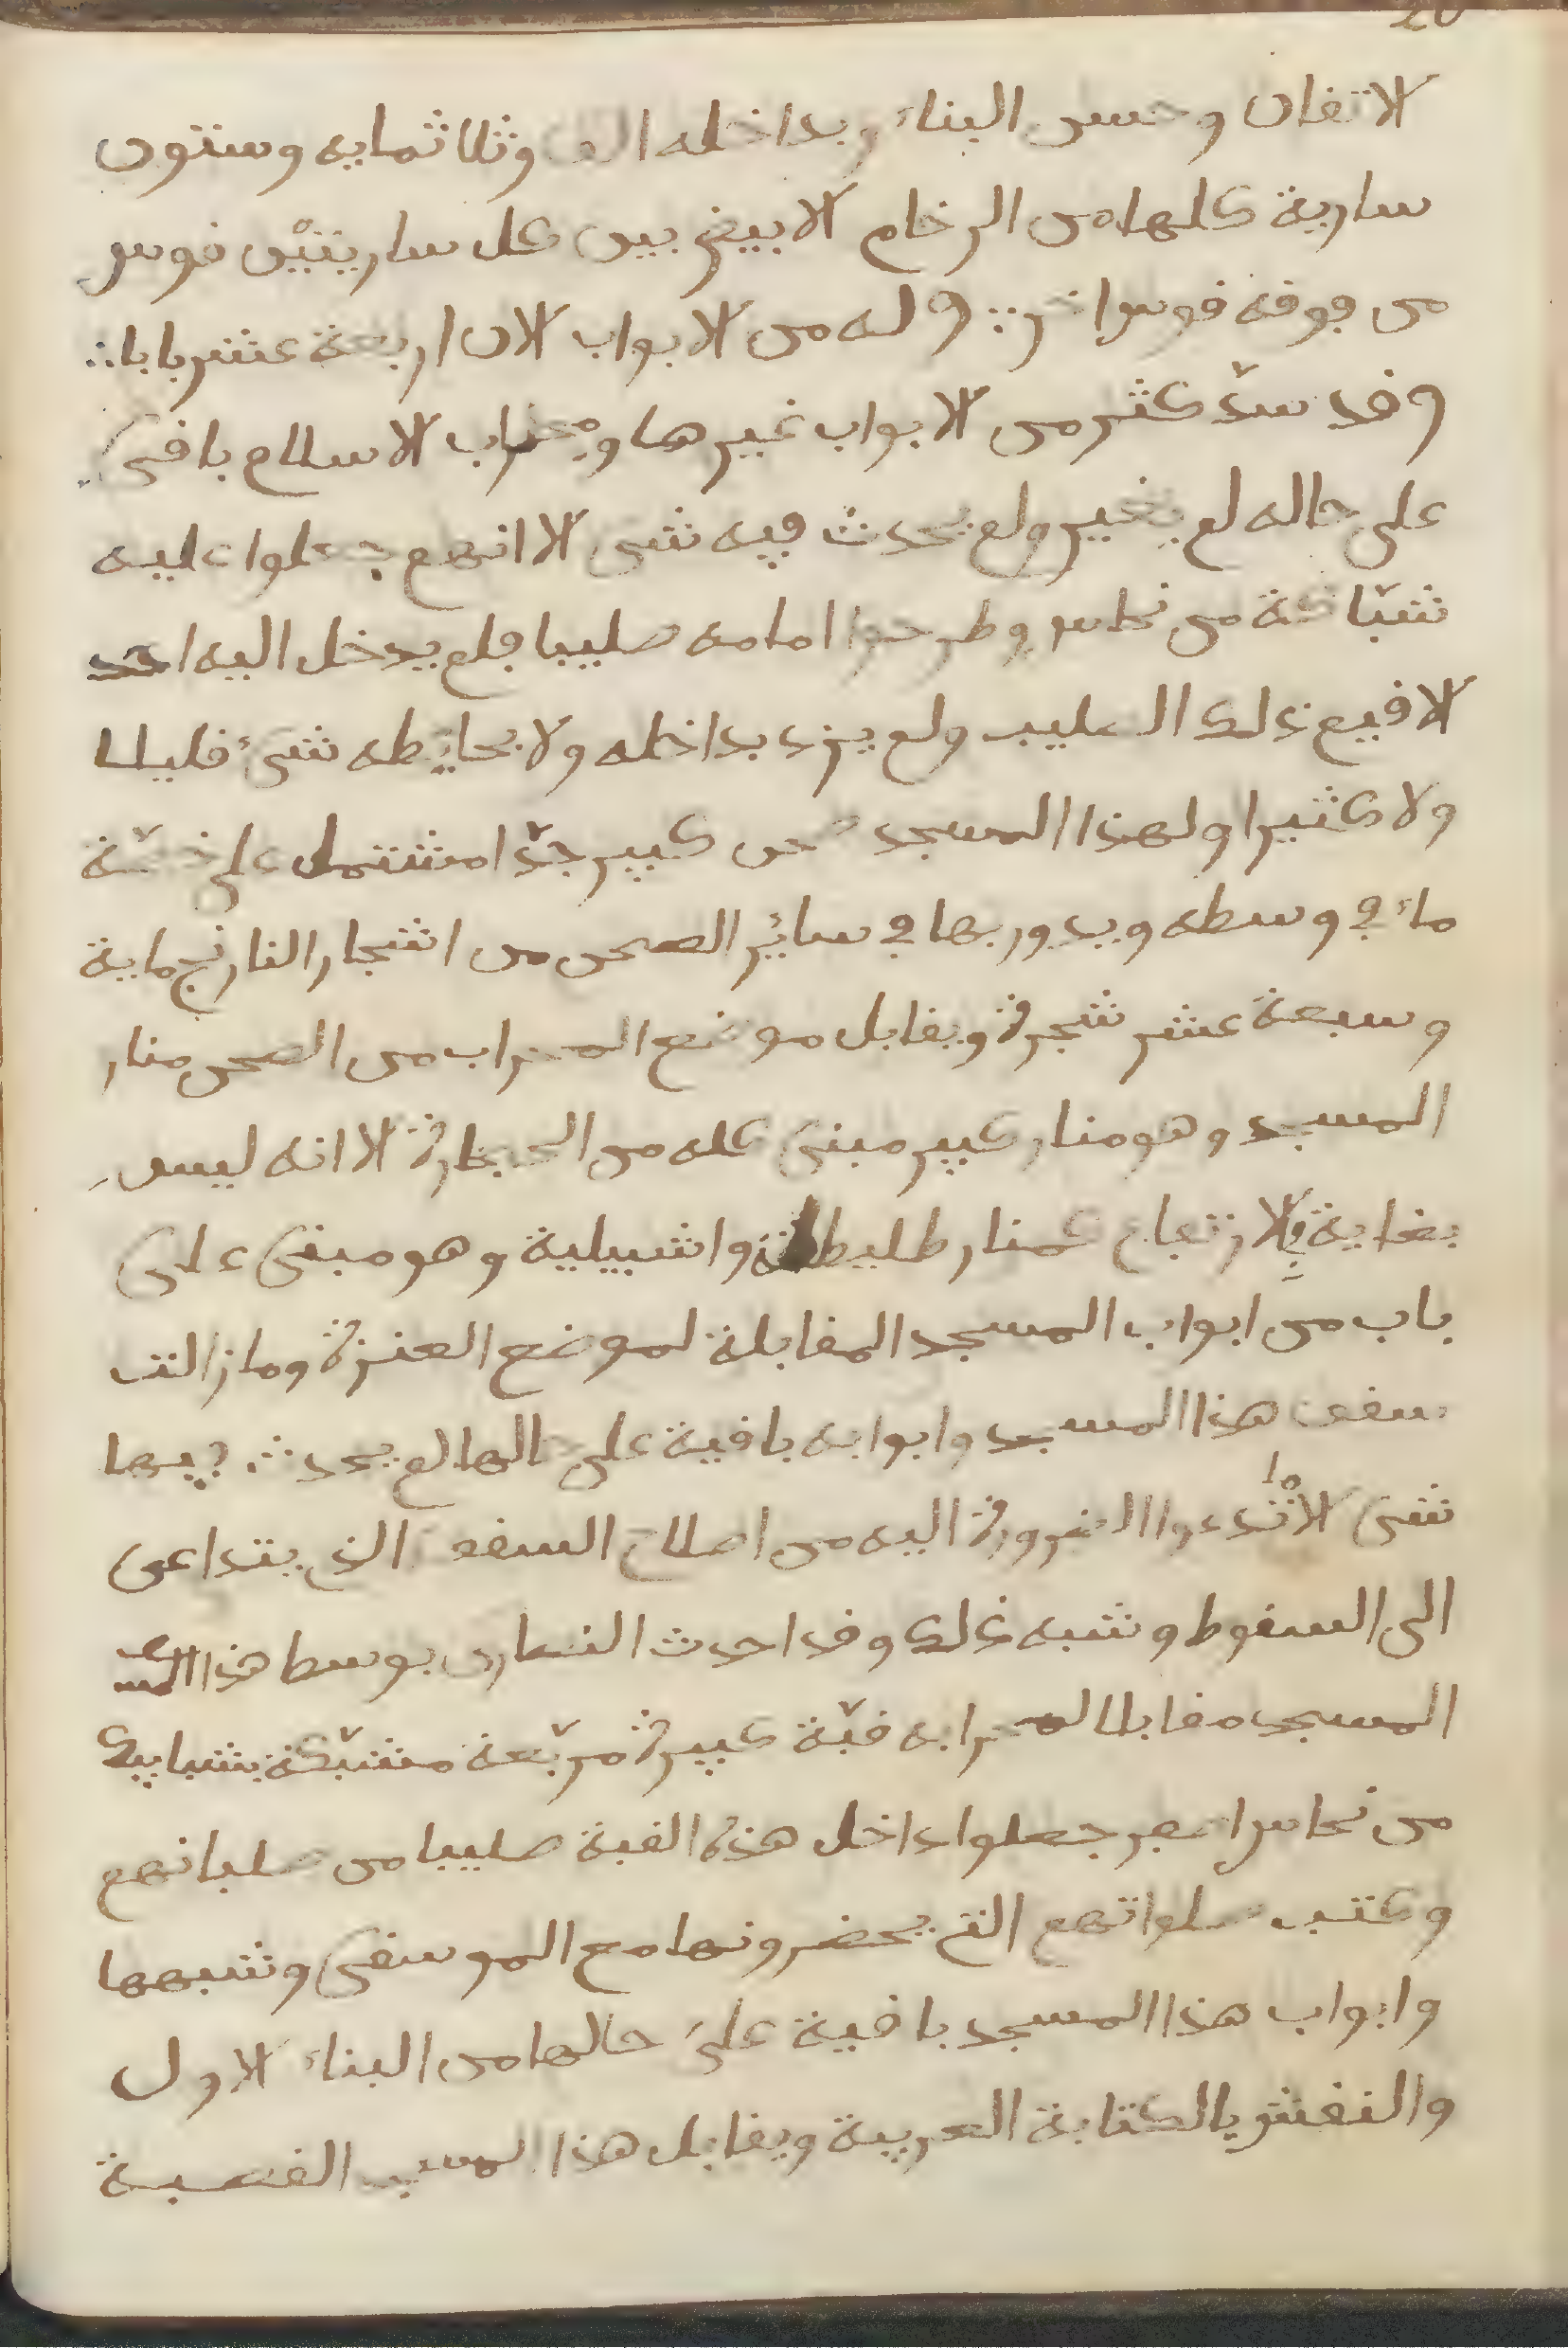 الاتقان وحسن البناء وبداخله الف وثلاثمايه وستون
سارية كلها من الرخام الابيض بين كل ساريتين قوس
من فوقه قوس اخر وله من الابواب الان اربعة عشر بابا
وقد سدّ كثير من الابواب غيرها ومحراب الاسلام باقي
على حاله لم يغير ولم يحدث فيه شي الا انهم جعلوا عليه
شبّاكة من نحاس وطرحوا امامه صليبا فلم يدخل اليه احد
الا قيم ذلك الصليب ولم يزد بداخله ولا بحايطه شيء قليلا
ولا كثيرا ولهذا المسجد صحن كبير جدّا مشتمل على خصّة
ماء في وسطه ويدور بها في سائر الصحن من اشجار النارنج ماية
وسبعة عشر شجرة ويقابل موضع المحراب من الصحن منار
المسجد وهو منار كبير مبني كله من الحجارة الا انه ليس
بغاية الارتفاع كمنار طليطلة واشبيلية وهو مبني على
باب من ابواب المسجد المقابلة لموضع العنزة ومازالت
سقف هذا المسجد وابوابه باقية على حالها لم يحدث فيها
شي الا ما تدعوا الضرورة اليه من اصلاح السقف الذي يتداعى
الى السقوط وشبه ذلك وقد احدث النصارى بوسط هذا
المسجد مقابلا لمحرابه قبّة كبيرة مربّعة مشبّكة بشبابيك
من نحاس اصفر جعلوا داخل هذه القبة صليبا من صلبانهم
وكتب صلواتهم التي يحضرونها مع الموسقى وشبهها
وابواب هذا المسجد باقية على حالها من البناء الاول
والنقش بالكتابة العربية ويقابل هذا المسجد القصبة